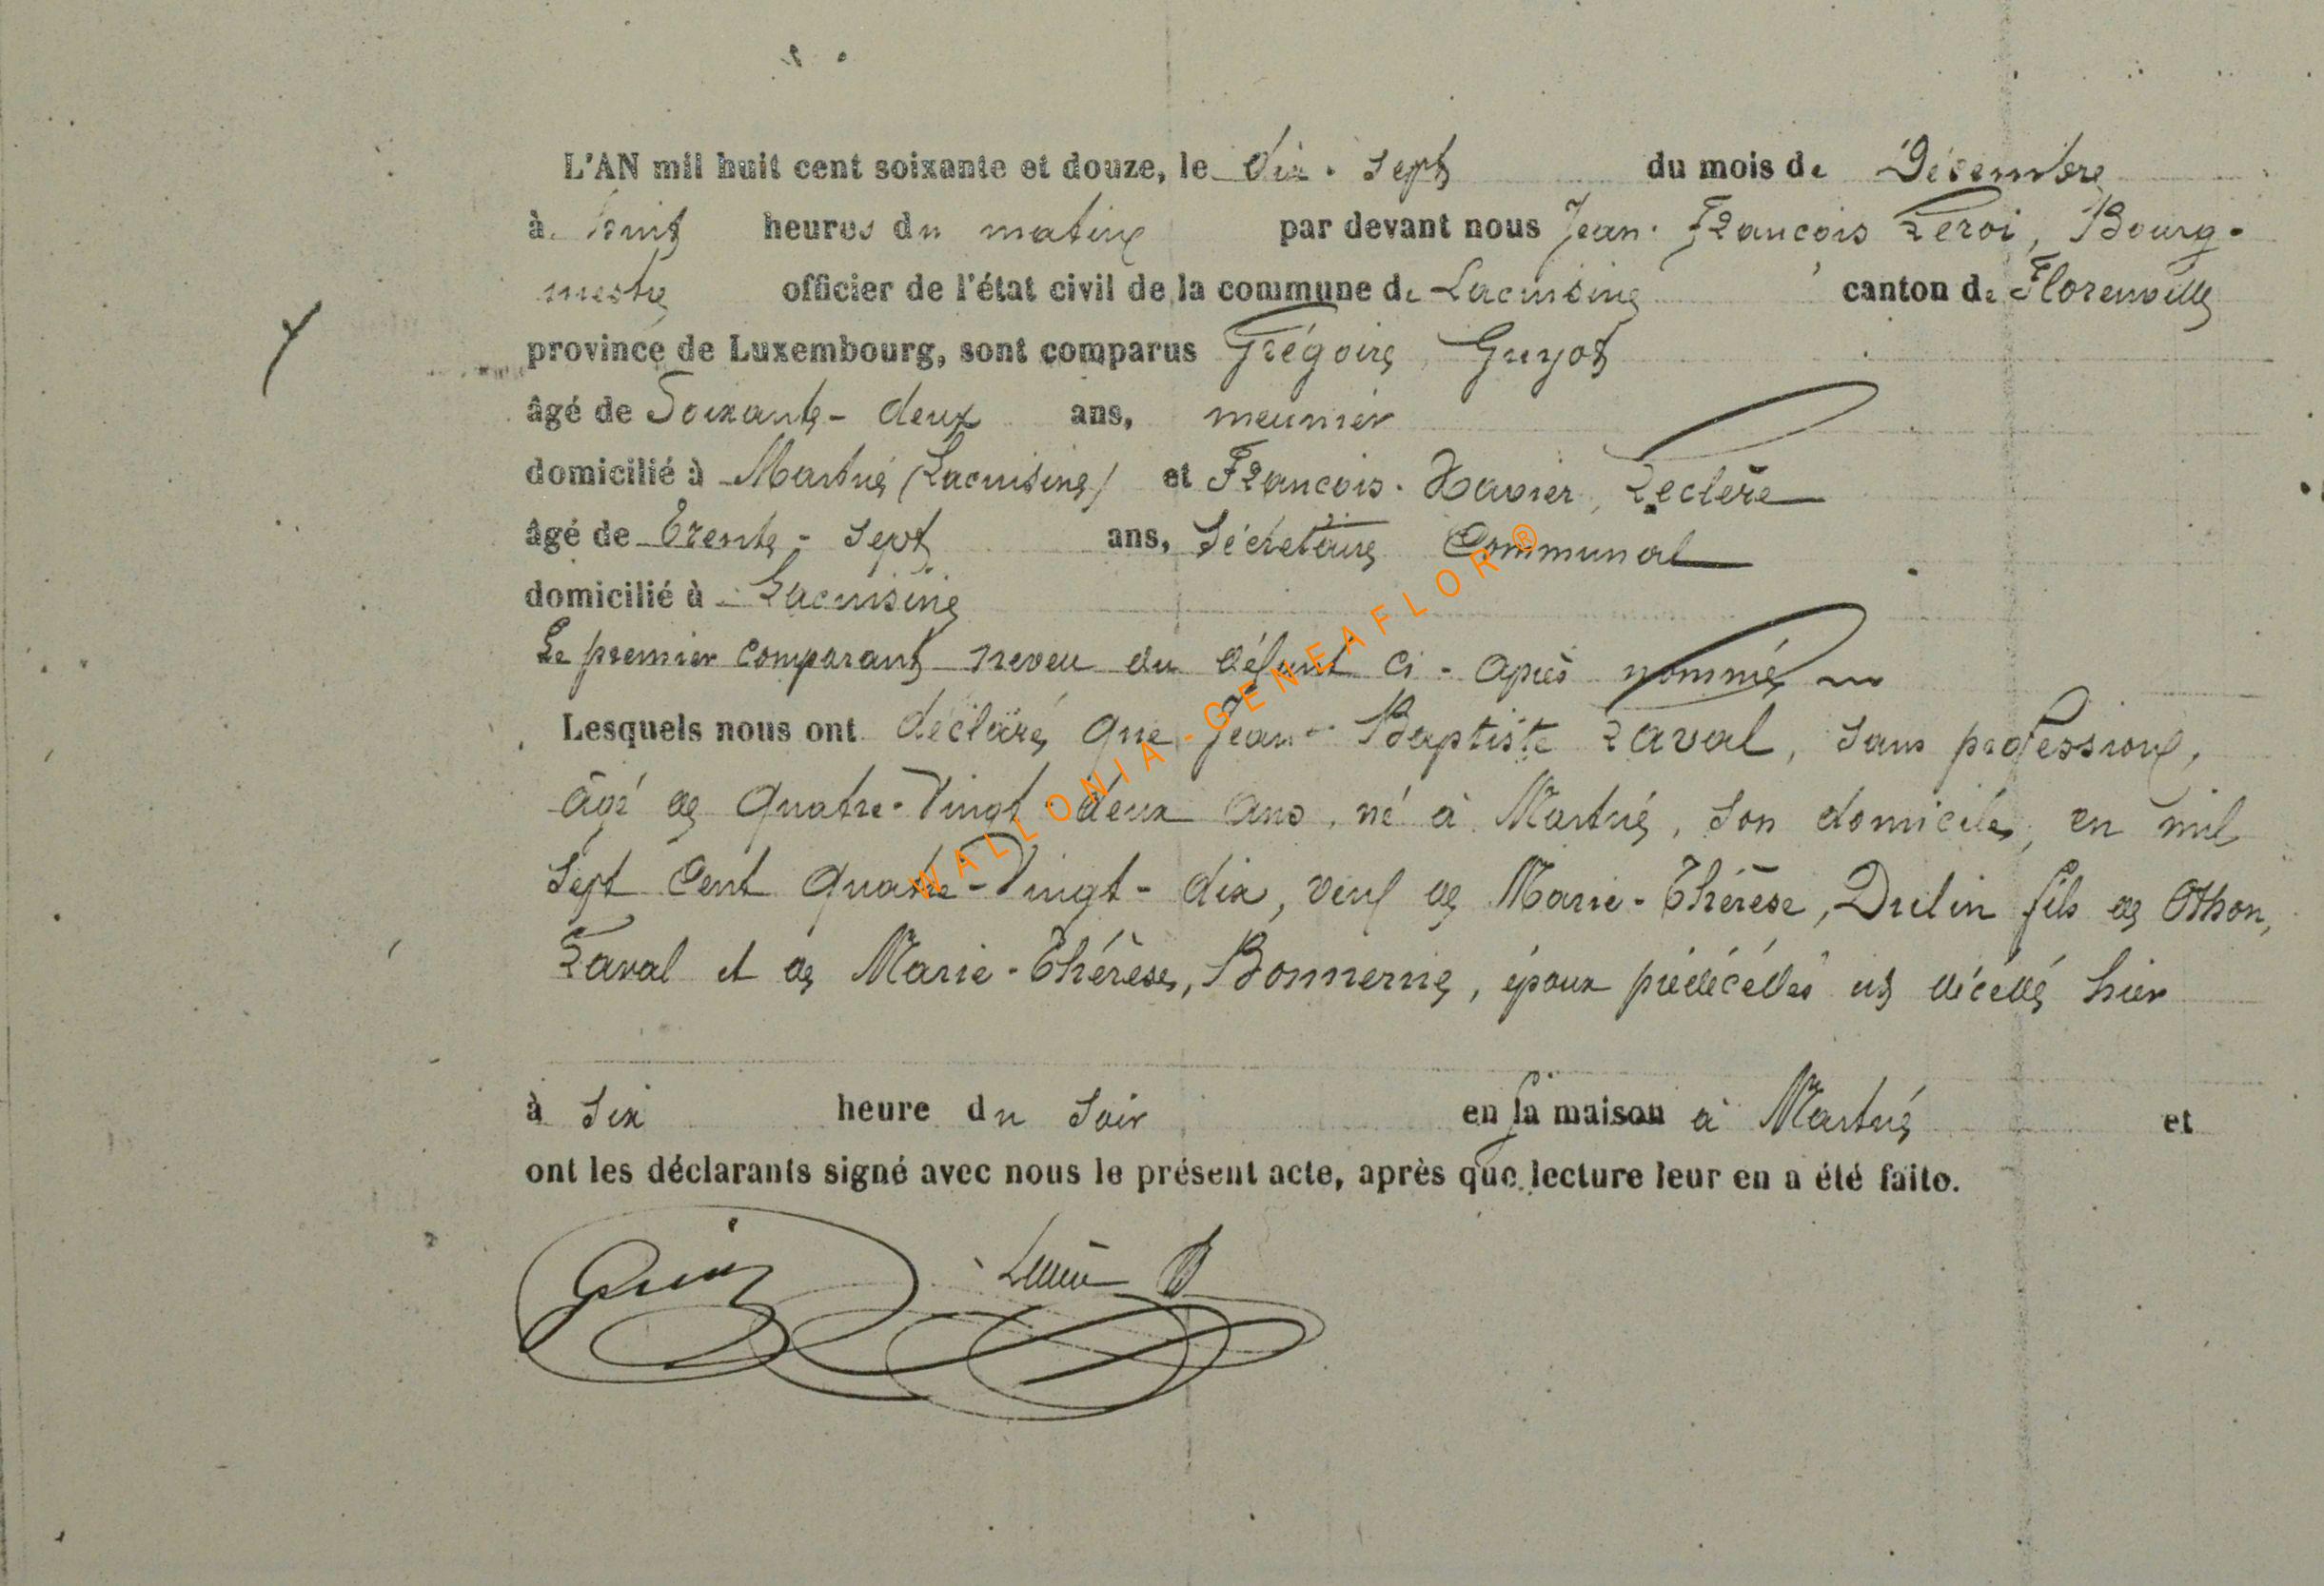 L'AN mil huit cent soixante et douze, le dix-sept du mois de Décembre
à huit heures du matin par devant nous Jean-François Leroi, Bourg-
mestre officier de l'état civil de la commune de Lacuisine canton de Florenville
province de Luxembourg, sont comparus Grégoire Guyot
âgé de Soixante-deux ans, meunier
domicilié à Martué (Lacuisine) et François-Xavier, Leclère
âgé de Trente-sept ans, Sécretaire Communal
domicilié à Lacuisine
Le premier comparant neveu du défunt ci-après nommé
Lesquels nous ont déclaré que Jean-Baptiste Laval, sans profession,
âgé de quatre-vingt deux ans, né à Martué, son domicile, en mil
sept cent quatre-vingt-dix, veuf de Marie-Thérèse, Dulin fils de Othon,
Laval et de Marie-Thérèse, Bonnerue, époux prédécédés est décédé hier
à six heure du soir en sa maison à Martué et
ont les déclarants signé avec nous le présent acte, après que lecture leur en a été faite.
WALLONIA-GENEAFLOR®